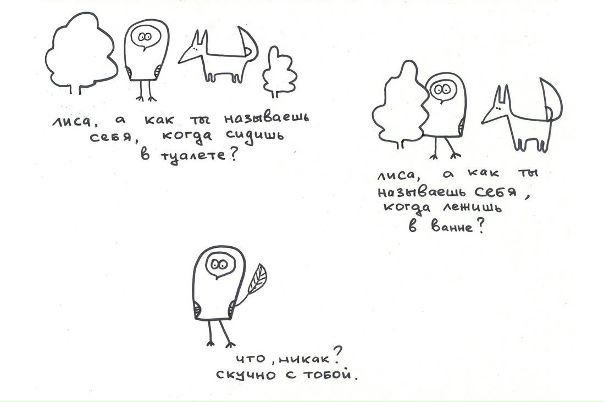 лиса, а как ты называешь
себя, когда сидишь
в туалете?
лиса, а как ты
называешь себя,
когда лежишь
в ванне?
что, никак?
скучно с тобой.